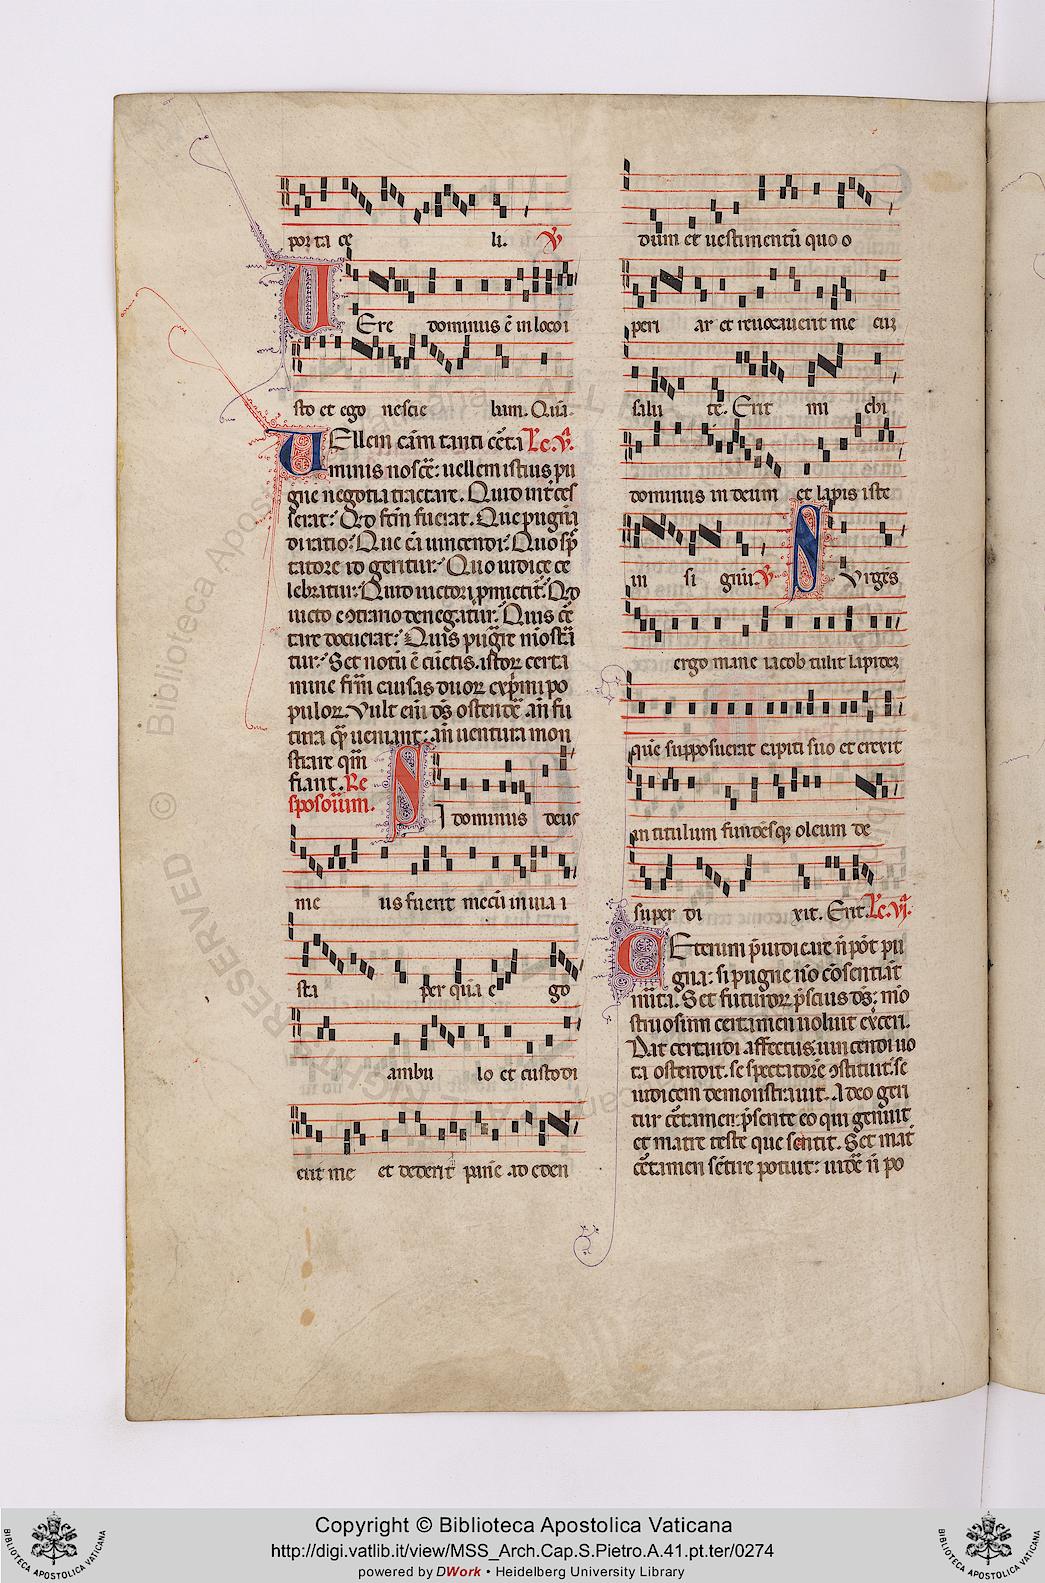 por ta ce li. V
Uere dominus ē in loco i
sto et ego nescie bam. Quia.
Uellem cām tanti cēta Lc. V.
minis noscē: uellem istius pu
gne negotia tractare. Quid int̄ ces
serat: Qd ftm̄ fuerat. Que pugna
di ratio: Que cā uincendi: Quo sp̄
tatore id geritur: Quo iudice ce
lebratur: Quid uictori ꝓmictit: Qd
uicto ꝯtrario denegatur: Quis cē
tare docuerat: Quis pugnare
tur: Set notū ē cūctis. istoꝝ certa
mine frm̄ causas duoꝝ exp̄mi po
puloꝝ. Vult eīm ds̄ ostendē. añ fu
tura uemant: añ uentura mon
strare qm̄
fiant. Re
sposorium.
SI dominus deus
me us fuerit mecū in uia i
sta per quā e go
ambu lo et custodi
erit me et dederit pane ad eden
dum et uestimentū quo o
peri ar et reuocauerit me cuꝫ
salu te. Erit mi chi
dominus in deum et lapis iste
in si gnū V Surges
ergo mane iacob tulit lapideꝫ
quē supposuerat capiti suo et erexit
in titulum fundēsqꝫ oleum de
super di xit. Erit. Lc. VI.
Ceterum p̄iudicare ñ pōt pu
gna: si pugne nō cōsentiāt
mīta. Set futuroꝝ p̄scius ds̄: mō
struosum certamen uoluit exceri.
Dat certandi affectus. uincendi uo
ta ostendit. se spectatorē ꝯstituit. se
iudicem demonstrauit. Adeo geri
tur cētamen: p̄sente eo qui genuit
et matre teste que sentit. Set mat̄
cētamen sētire potuit: uidē ñ po
Copyright © Biblioteca Apostolica Vaticana
http://digi.vatlib.it/view/MSS_Arch.Cap.S.Pietro.A.41.pt.ter/0274
powered by DWork • Heidelberg University Library